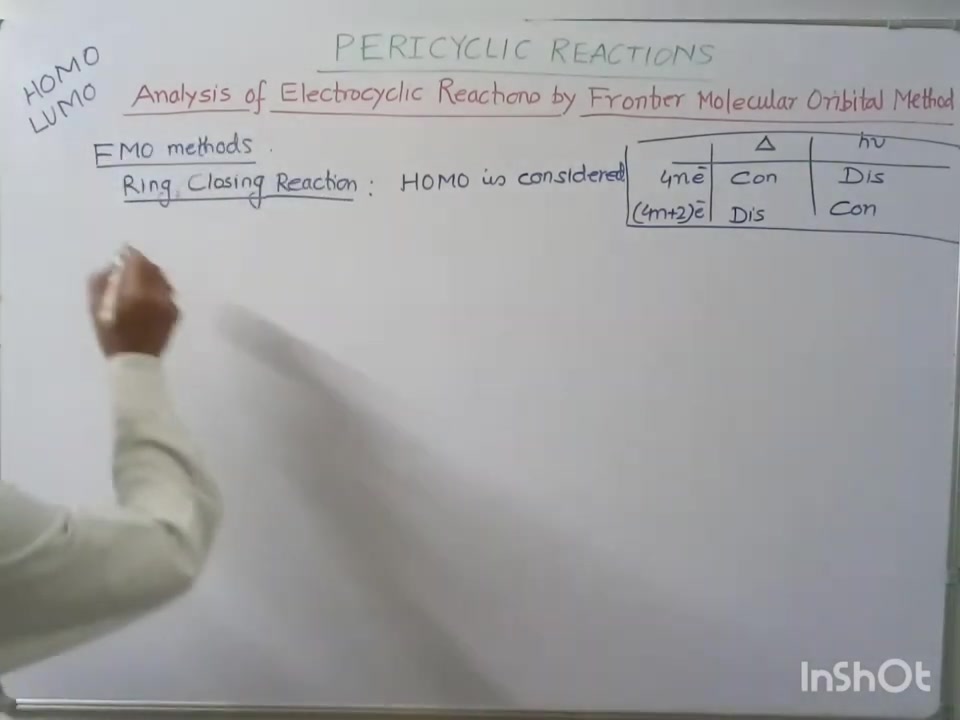 PERICYCLIC REACTIONS
HOMO
LUMO
Analysis of Electrocyclic Reactions by Frontier Molecular Oribital Method
FMO methods.
Ring Closing Reaction: HOMO is considered
Δ hν
4nē Con Dis
(4n+2)ē Dis Con
InShOt